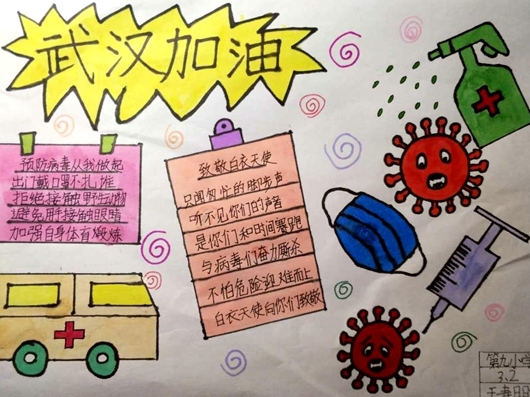 武汉加油
预防病毒从我做起
出门戴口罩不扎堆
拒绝接触野生动物
避免用手接触眼睛
加强自身体育锻炼
致敬白衣天使
只闻你们的脚步声
听不见你们的声音
是你们和时间赛跑
与病毒们奋力厮杀
不怕危险迎难而上
白衣天使向你们致敬
第九小学
3.2